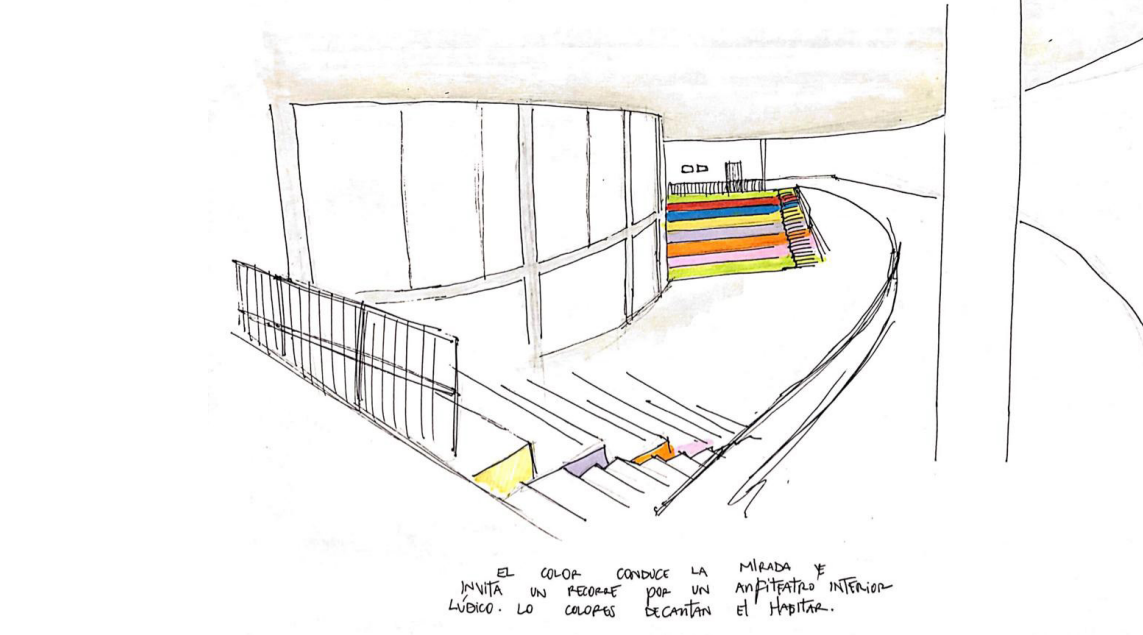 EL COLOR CONDUCE LA MIRADA E
INVITA UN RECORRE POR UN ANFITEATRO INTERIOR
LÚDICO. LO COLORES DECANTAN EL HABITAR.